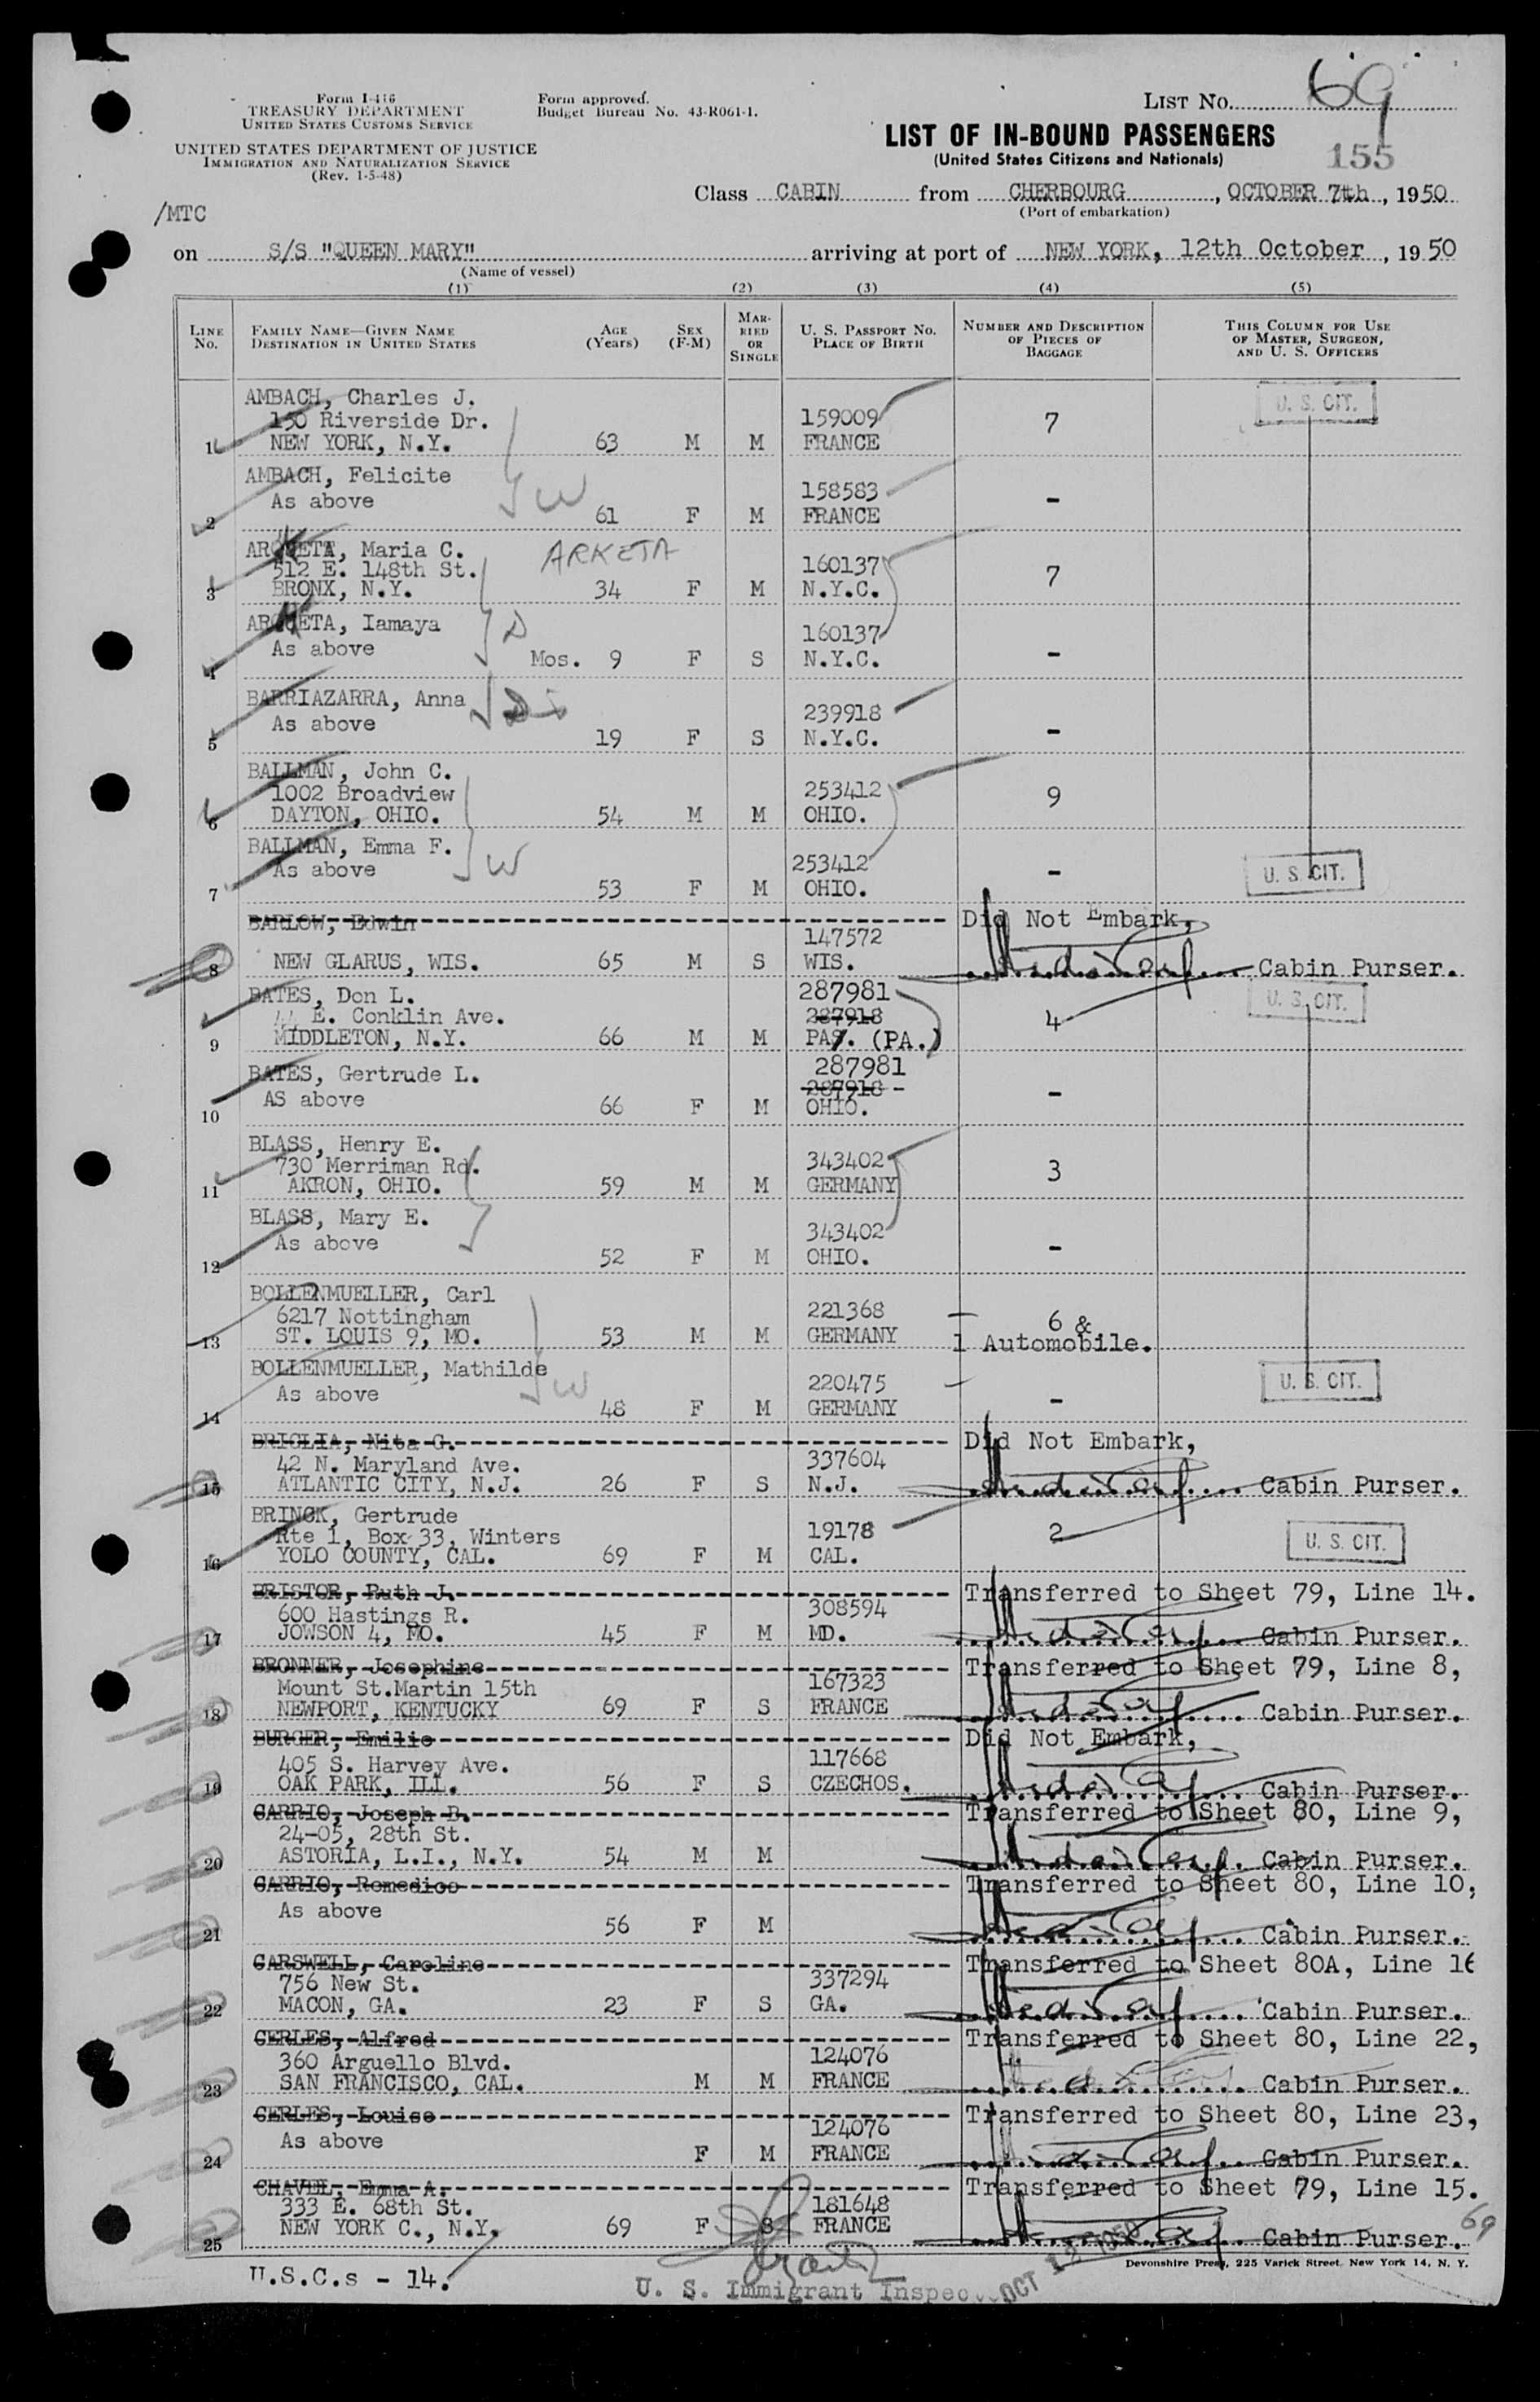 Form I-416
TREASURY DEPARTMENT
UNITED STATES CUSTOMS SERVICE
UNITED STATES DEPARTMENT OF JUSTICE
IMMIGRATION AND NATURALIZATION SERVICE
(Rev. 1-5-48)
Form approved.
Budget Bureau No. 43-R061-1.
LIST NO. 69
LIST OF IN-BOUND PASSENGERS
(United States Citizens and Nationals)
155
Class CABIN from CHERBOURG, OCTOBER 7th, 1950
(Port of embarkation)
/MTC
on S/S "QUEEN MARY" arriving at port of NEW YORK, 12th October, 1950
(Name of vessel)
(1) (2) (3) (4) (5)
LINE NO. FAMILY NAME—GIVEN NAME DESTINATION IN UNITED STATES AGE (Years) SEX (F-M) MARRIED OR SINGLE U. S. PASSPORT NO. PLACE OF BIRTH NUMBER AND DESCRIPTION OF PIECES OF BAGGAGE THIS COLUMN FOR USE OF MASTER, SURGEON, AND U. S. OFFICERS
AMBACH, Charles J. U. S. CIT.
150 Riverside Dr. 159009 7
1 NEW YORK, N.Y. 63 M M FRANCE
AMBACH, Felicite
As above W 158583 -
2 61 F M FRANCE
ARQUETA, Maria C. ARKETA
512 E. 148th St. 160137 7
3 BRONX, N.Y. 34 F M N.Y.C.
ARQUETA, Iamaya D 160137
4 As above Mos. 9 F S N.Y.C. -
BARRIAZARRA, Anna
As above 239918 -
5 19 F S N.Y.C.
BALLMAN, John C.
1002 Broadview 253412 9
6 DAYTON, OHIO. 54 M M OHIO.
BALLMAN, Emma F.
As above W 253412 - U. S. CIT.
7 53 F M OHIO.
BARLOW, Edwin Did Not Embark,
147572
8 NEW GLARUS, WIS. 65 M S WIS. Cabin Purser.
BATES, Don L. 287981 U. S. CIT.
44 E. Conklin Ave. 287918 4
9 MIDDLETON, N.Y. 66 M M PA. (PA.)
BATES, Gertrude L. 287981
AS above 287918 -
10 66 F M OHIO.
BLASS, Henry E.
730 Merriman Rd. 343402 3
11 AKRON, OHIO. 59 M M GERMANY
BLASS, Mary E.
As above 343402 -
12 52 F M OHIO.
BOLLENMUELLER, Carl
6217 Nottingham 221368 6 &
13 ST. LOUIS 9, MO. 53 M M GERMANY 1 Automobile.
BOLLENMUELLER, Mathilde
As above W 220475 - U. S. CIT.
14 48 F M GERMANY
BRIGLIA, Nita G. Did Not Embark,
42 N. Maryland Ave. 337604
15 ATLANTIC CITY, N.J. 26 F S N.J. Cabin Purser.
BRINCK, Gertrude
Rte 1, Box 33, Winters 19178 2 U. S. CIT.
16 YOLO COUNTY, CAL. 69 F M CAL.
BRISTOR, Ruth J. Transferred to Sheet 79, Line 14.
600 Hastings R. 308594
17 JOWSON 4, MO. 45 F M MD. Cabin Purser.
BRONNER, Josephine Transferred to Sheet 79, Line 8,
Mount St.Martin 15th 167323
18 NEWPORT, KENTUCKY 69 F S FRANCE Cabin Purser.
BURGER, Emilie Did Not Embark,
405 S. Harvey Ave. 117668
19 OAK PARK, ILL. 56 F S CZECHOS. Cabin Purser.
CARRIO, Joseph B. Transferred to Sheet 80, Line 9,
24-05, 28th St.
20 ASTORIA, L.I., N.Y. 54 M M Cabin Purser.
CARRIO, Romedico Transferred to Sheet 80, Line 10,
As above
21 56 F M Cabin Purser.
CARSWELL, Caroline Transferred to Sheet 80A, Line 16
756 New St. 337294
22 MACON, GA. 23 F S GA. Cabin Purser.
CERLES, Alfred Transferred to Sheet 80, Line 22,
360 Arguello Blvd. 124076
23 SAN FRANCISCO, CAL. M M FRANCE Cabin Purser.
CERLES, Louise Transferred to Sheet 80, Line 23,
As above 124076
24 F M FRANCE Cabin Purser.
CHAVEL, Emma A. Transferred to Sheet 79, Line 15.
333 E. 68th St. 181648
25 NEW YORK C., N.Y. 69 F S FRANCE Cabin Purser. 69
Devonshire Press, 225 Varick Street, New York 14, N. Y.
U.S.C.s - 14.
U. S. Immigrant Inspec
OCT 12 1950